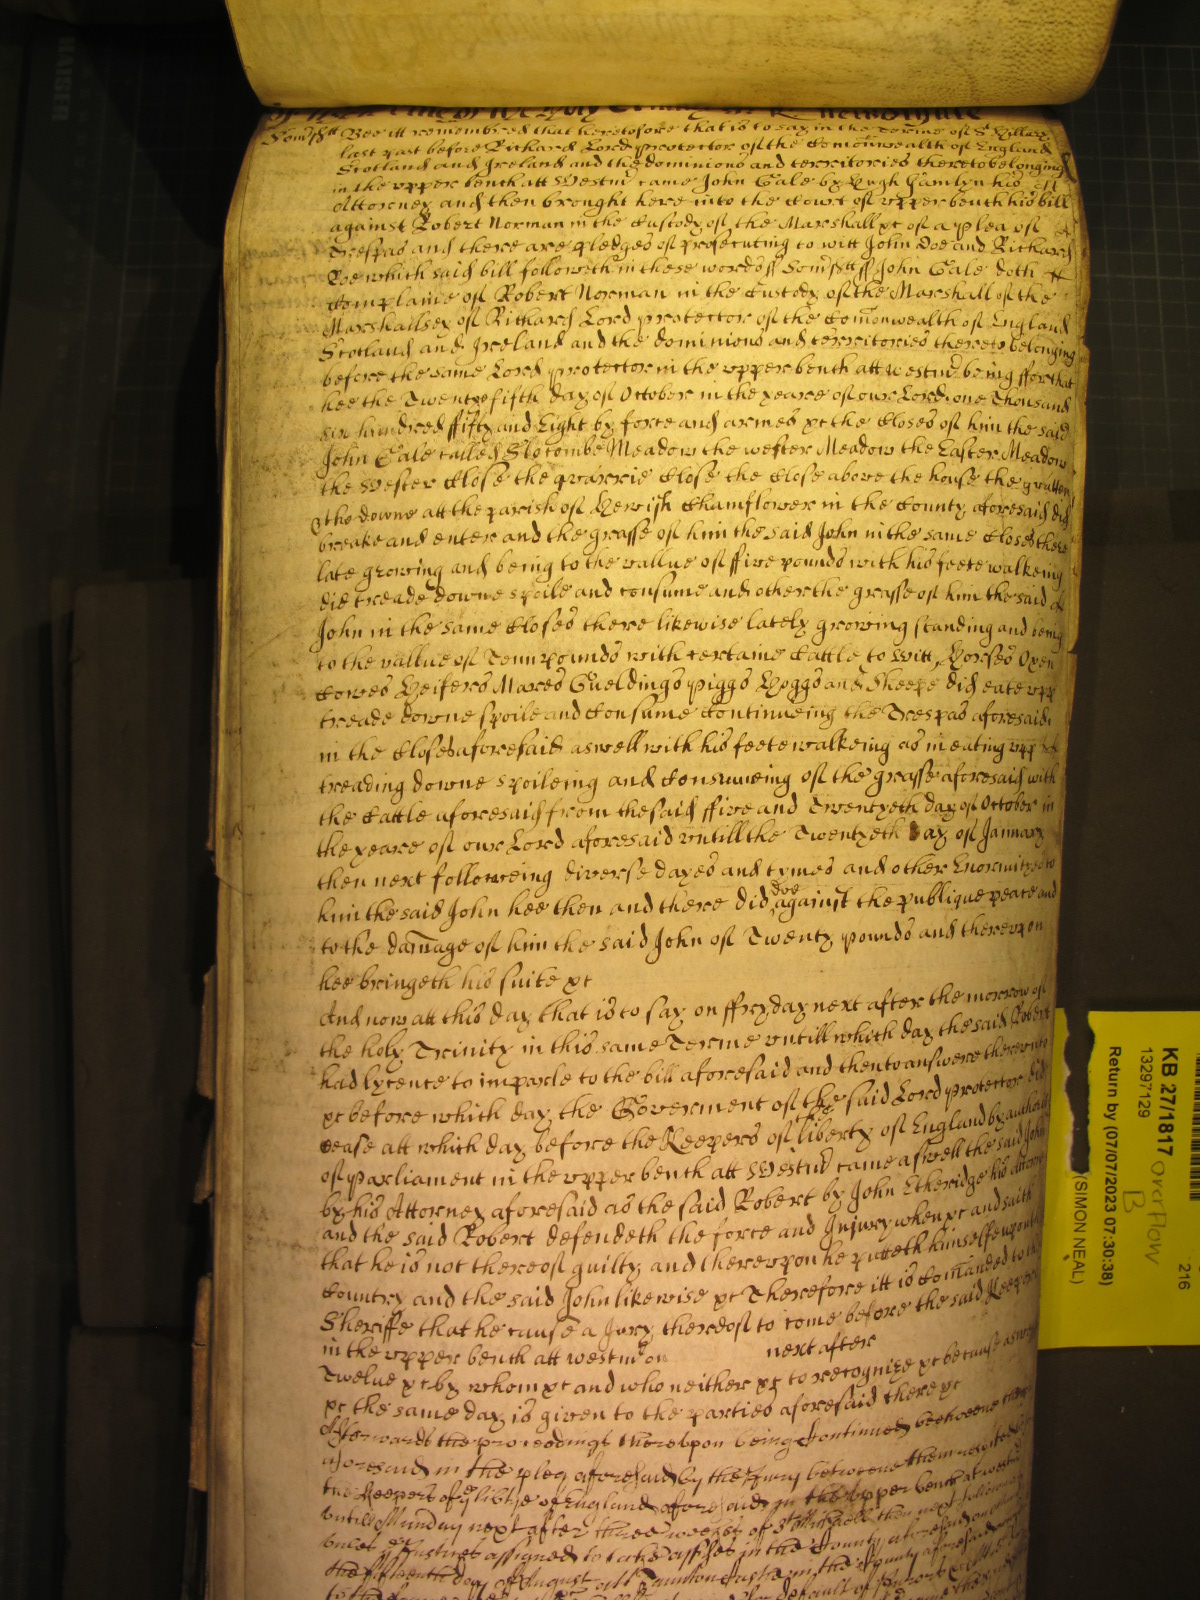 Som'sstt Bee itt remembred that heretofore that is to say in the Terme of St Hillary
last past before Richard Lord protector of the Comonwealth of England
Scotland and Ireland and the dominions and territories thereto belonging
in the upper bench att Westmr came John Gale by Hugh Hamlyn his
Attorney and then brought here into the Court of upper bench his bill
against Robert Norman in the Custody of the Marshall &c of a plea of
Trespas and there are pledges of prosecuting to witt John Doe and Richard
Roe which said bill followeth in these words ss Som'sstt ss John Gale doth
Complaine of Robert Norman in the Custody of the Marshall of the
Marshallsey of Richard Lord protector of the Comonwealth of England
Scotland and Ireland and the dominions and territories thereto belonging
before the same Lord protector in the upper bench att westmr being ffor that
hee the Twenty fifth day of October in the yeare of our Lord one Thousand
six hundred ffifty and Eight by force and armes &c the Closes of him the said
John Gale called Slocombe Meadow the wester Meadow the Easter Meadow
the Wester Close the quarrie Close the Close above the house the
downe att the parish of Hewish Chamflower in the County aforesaid did
breake and enter and the grasse of him the said John in the same Closes there
late growing and being to the vallue of ffive pounds with his feete walkeing
did treade downe spoile and consume and other the grasse of him the said
John in the same Closes there likewise lately growing standing and being
to the vallue of Tenn pounds with certaine Cattle to Witt Horses Oxen
Cowes Heifers Mares Gueldings piggs Hoggs and Sheepe did eate upp
treade downe spoile and Consume Continueing the Trespas aforesaid
in the Closes aforesaid aswell with his feete walkeing as in eating upp
treading downe spoileing and Consumeing of the grasse aforesaid with
the Cattle aforesaid from the said ffive and Twentyeth day of October in
the yeare of our Lord aforesaid untill the Twentyeth day of January
then next followeing diverse dayes and tymes and other Enormityes to
him the said John hee then and there did doe against the publique peace and
to the damage of him the said John of Twenty pounds and thereupon
hee bringeth his suite &c
And now att this day that is to say on ffryday next after the morrow of
the holy Trinity in this same Terme untill which day the said Robert
had lycence to imparle to the bill aforesaid and then to answere thereunto
&c before which day the Goverment of the said Lord protector did
cease att which day before the Keepers of the liberty of England by authority
of parliament in the upper bench att Westmr came aswell the said John
by his Attorney aforesaid as the said Robert by John Etheridge his Attorney
and the said Robert defendeth the force and Injury when &c and saith
that he is not thereof guilty and thereupon he putteth himselfe upon the
Country and the said John likewise &c Therefore itt is Comanded to the
Sheriffe that he cause a Jury thereof to come before the said Keepers
in the upper bench att westmr on next after
Twelve &c by whom &c and who neither &c to recognize &c because aswell
&c the same day is given to the parties aforesaid there &c
Afterwards the proceedings thereupon being Continued beetweene
aforesaid in the plea aforesaid by the Jury betweene them respited
the Keepers of ye libtye of England aforesaid in the upper bench at westmr
untill Munday next after three weekes of St Michaell then next following
unles Justices assigned to take assises in the County aforesaid
the fifteenth day of August att Taunton in the County aforesaid
default of Jurors
KB 27/1817 overflow
13297129 B
216
Return by (07/07/2023 07:30:38)
(SIMON NEAL)
KAISER